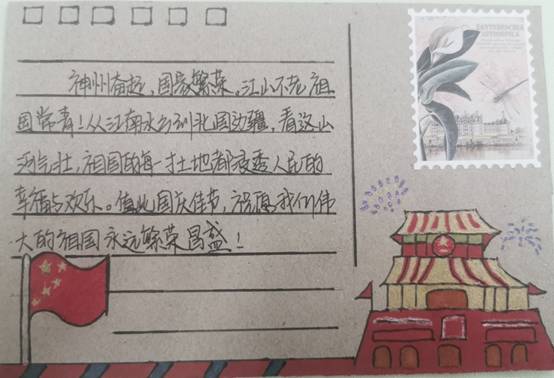 神州奋起,国家繁荣,江山不老祖
国常青!从江南水乡到北国边疆,看这山
河气壮,祖国的每一寸土地都浸透人民的
幸福与欢乐。值此国庆佳节,祝愿我们伟
大的祖国永远繁荣昌盛!